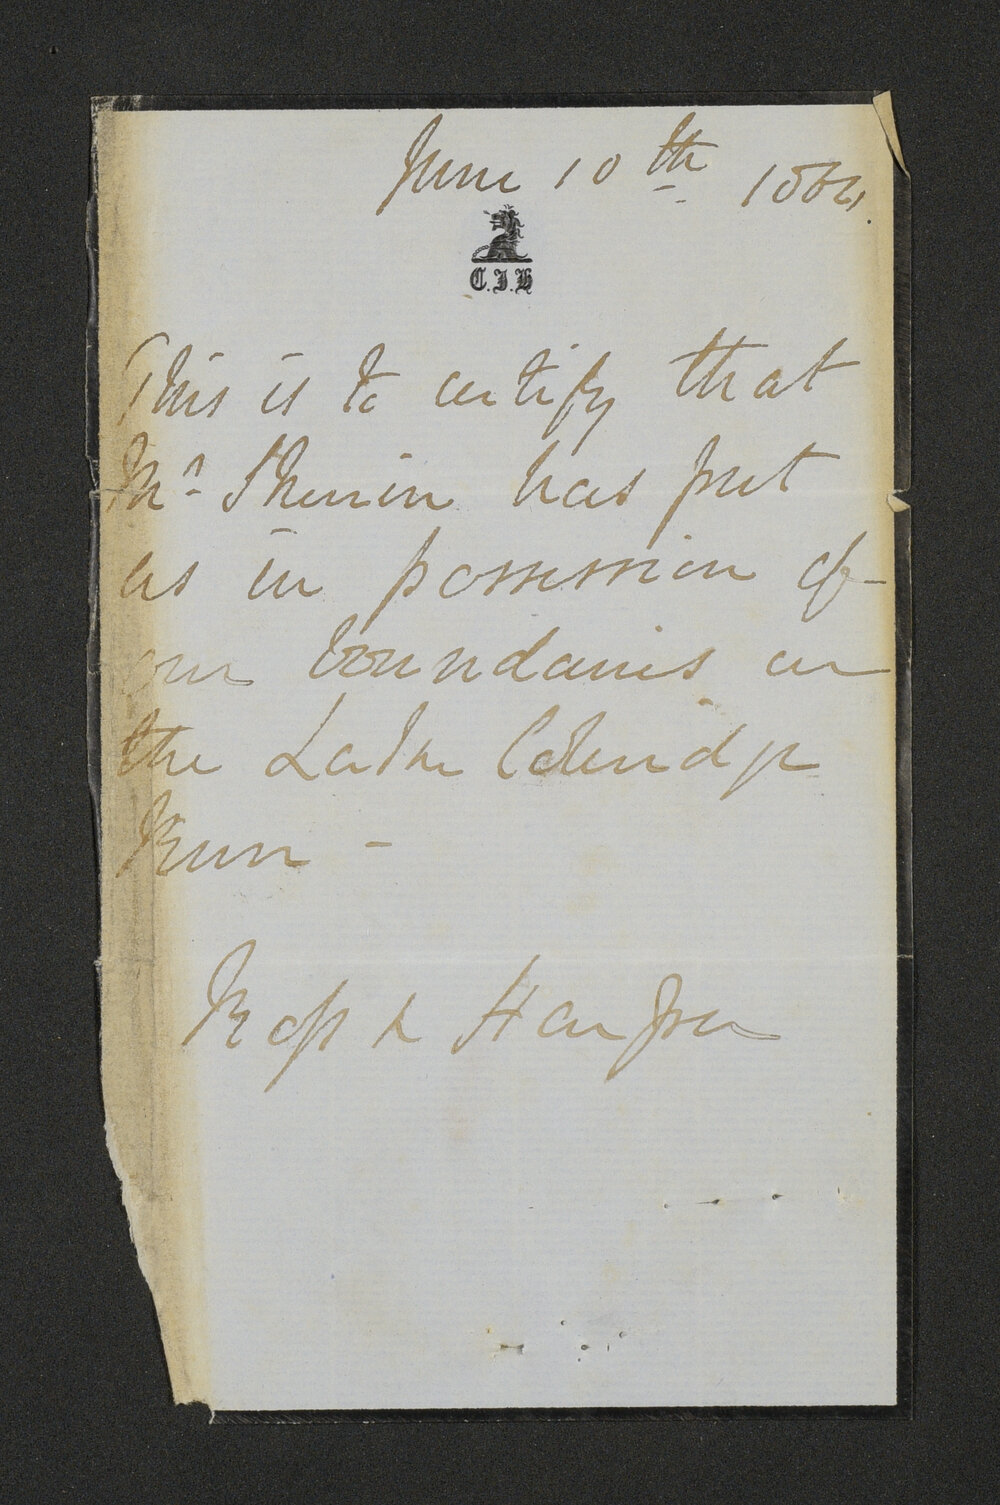 June 10th 1864.
C.J.H
This is to certify that
Mr. Phillips has put
us in possession of
our boundaries on
the Lake Coleridge
Run -
Ross & Harper